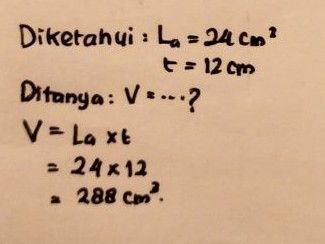 Diketahui : La = 24 cm²
t = 12 cm
Ditanya : V = ...?
V = La x t
= 24 x 12
= 288 cm³.